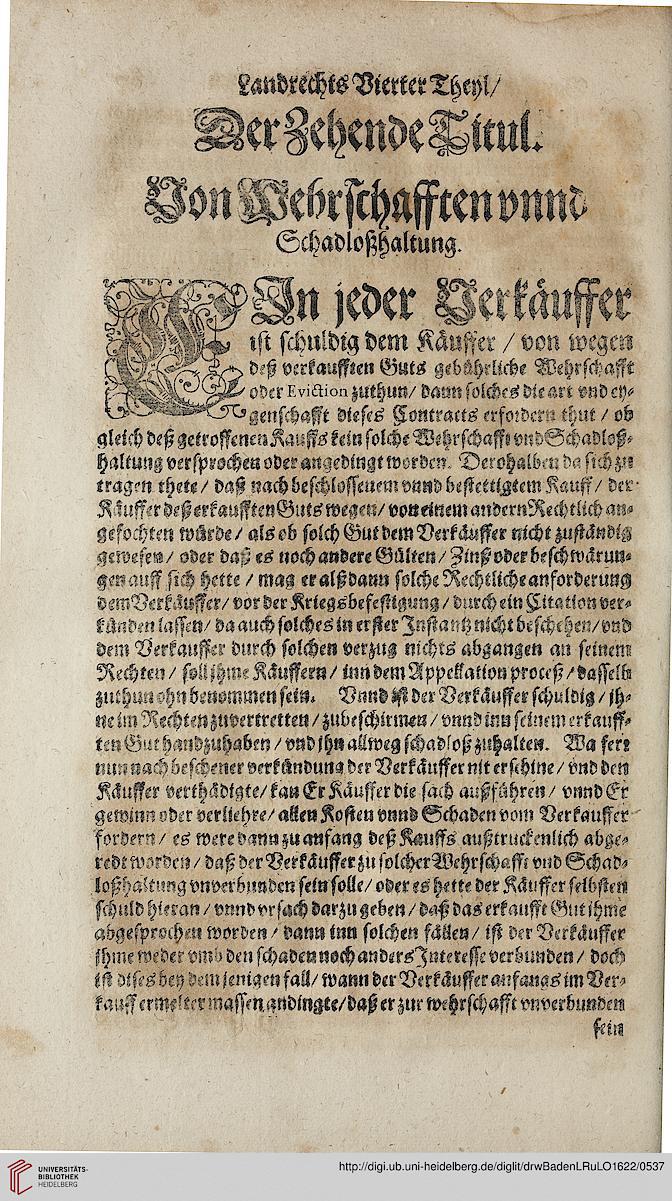 Landrechts Vierter Theyl/
Der Zehende Titul.
Von Wehrschafften vnnd
Schadloßhaltung.
EIn jeder Verkäuffer
ist schuldig dem Käuffer / von wegen
deß verkaufften Guts gebührliche Wehrschafft
oder Eviction zuthun/ dann solches die art vnd ey-
genschafft dieses Contracts erfordern thut / ob
gleich deß getroffenen Kauffs kein solche Wehrschafft vnd Schadloß-
haltung versprochen oder angedingt worden. Derohalben da sich zu
tragen thete / daß nach beschlossenem vnnd bestettigtem Kauff / der
Käuffer deß erkaufften Guts wegen/ von einem andern Rechtlich an-
gefochten würde / als ob solch Gut dem Verkäuffer nicht zuständig
gewesen / oder daß es noch andere Gülten / Zinß oder beschwärun-
gen auff sich hette / mag er alßdann solche Rechtliche anforderung
dem Verkäuffer/ vor der Kriegsbefestigung / durch ein Citation ver-
künden lassen/ da auch solches in erster Instantz nicht beschehen/ vnd
dem Verkauffer durch solchen verzug nichts abgangen an seinem
Rechten / soll jhme Käuffern / inn dem Appellation proceß / dasselb
zuthun ohn benommen sein. Vnnd ist der Verkäuffer schuldig / jh-
ne im Rechten zuvertretten / zubeschirmen / vnnd inn seinem erkauff-
ten Gut handzuhaben / vnd jhn allweg schadloß zuhalten. Wa fere
nun nach beschener verkündung der Verkäuffer nit erschine/ vnd den
Käuffer verthädigte/ kan Er Käuffer die sach außführen / vnnd Er
gewinn oder verliehre/ allen Kosten vnnd Schaden vom Verkauffer
fordern / es were dann zu anfang deß Kauffs außtruckenlich abge-
redt worden / daß der Verkäuffer zu solcher Wehrschafft vnd Schad-
loßhaltung vnverbunden sein solle/ oder es hette der Käuffer selbsten
schuld hieran / vnnd vrsach darzu geben / daß das erkaufft Gut jhme
abgesprochen worden / dann inn solchen fällen / ist der Verkäuffer
jhme weder vmb den schaden noch anders Interesse verbunden / doch
ist dises bey dem jenigen fall/ wann der Verkäuffer anfangs im Ver-
kauff ermelter massen andingte/ daß er zur wehrschafft vnverbunden
sein
UNIVERSITÄTS-
BIBLIOTHEK
HEIDELBERG
http://digi.ub.uni-heidelberg.de/diglit/drwBadenLRuLO1622/0537